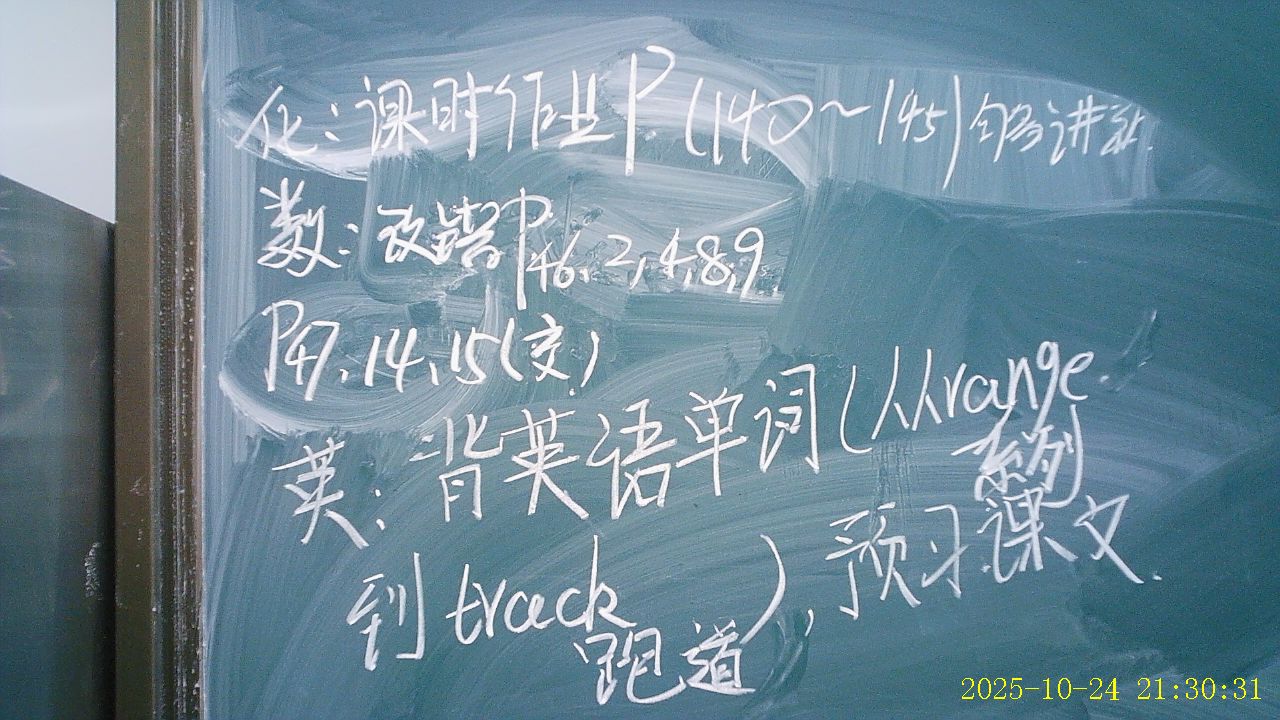 化：课时作业P(140～145)
数：改错P46、2,4,8,9
P47、14、15(交)
英：背英语单词(从range系列
到track跑道),预习课文.
2025-10-24 21:30:31